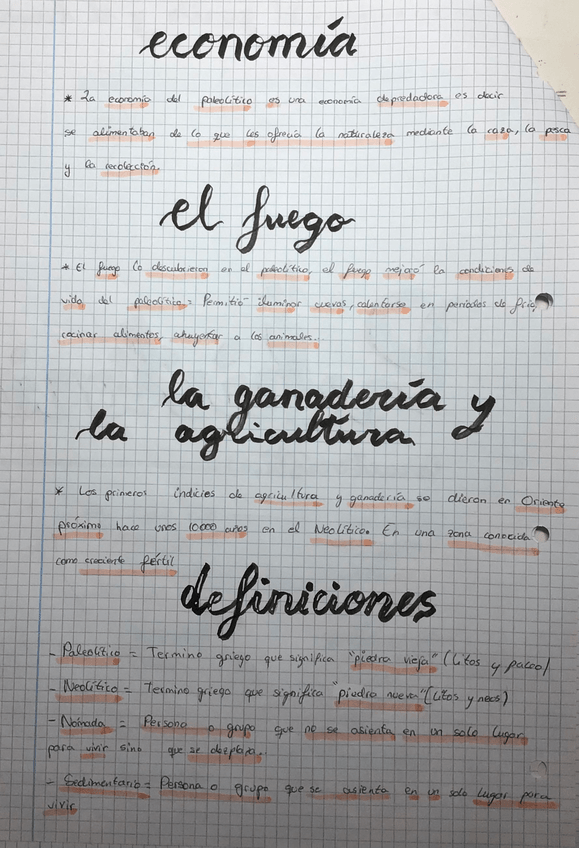 economía
* La economía del paleolítico es una economía depredadora es decir
se alimentaban de lo que les ofrecía la naturaleza mediante la caza, la pesca
y la recolección.
el fuego
* El fuego lo descubrieron en el paleolítico, el fuego mejoró la condiciones de
vida del paleolítico = Permitió iluminar cuevas, calentarse en periodos de frio,
cocinar alimentos, ahuyentar a los animales...
la ganadería y
la aglicultura
* Los primeros indicies de agricultura y ganadería se dieron en Oriente
próximo hace unos 10000 años en el Neolítico. En una zona conocida
como creciente fértil
definiciones
- Paleolítico = Termino griego que significa "piedra vieja" (Litos y paleo)
- Neolítico = Termino griego que significa "piedra nueva" (Litos y neos)
- Nómada = Persona o grupo que no se asienta en un solo lugar
para vivir sino que se dezplaza.
- Sedimentario = Persona o grupo que se asienta en un solo lugar para
vivir